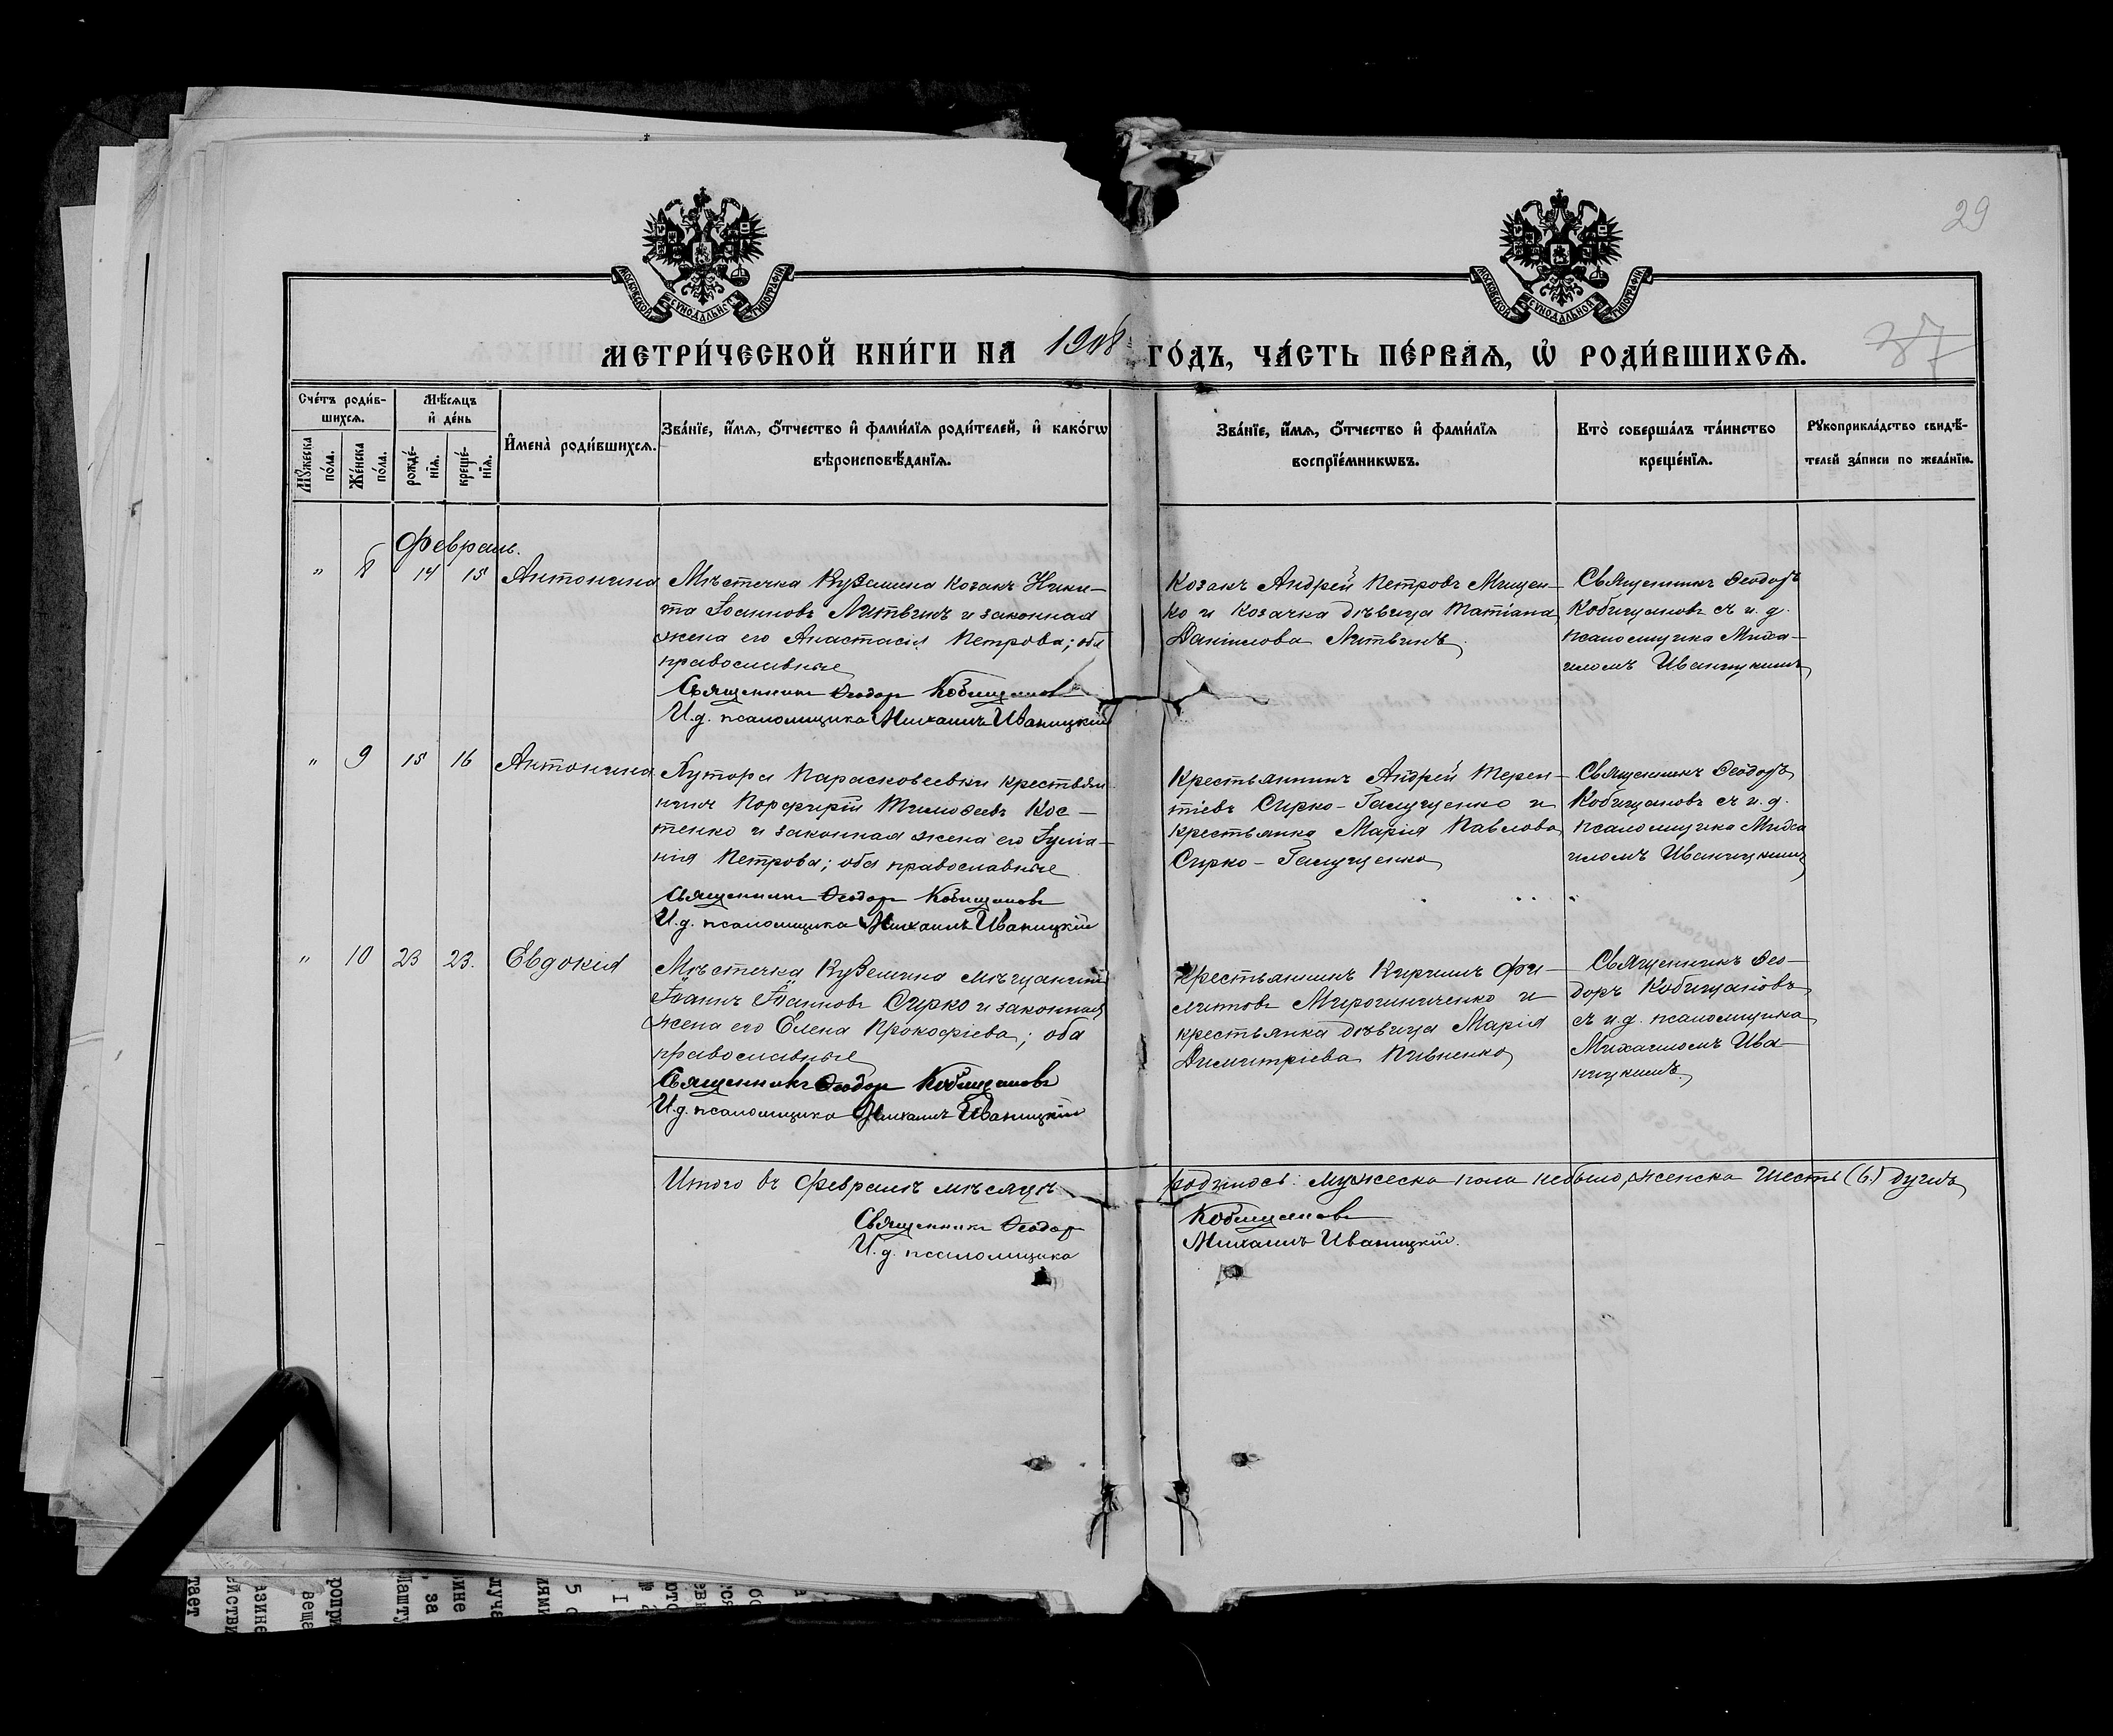 29
МОСКОВСКОЙ СѴНОДАЛЬНОЙ ТИПОГРАФІИ
МОСКОВСКОЙ СѴНОДАЛЬНОЙ ТИПОГРАФІИ
МЕТРИ́ЧЕСКОЙ КНИ́ГИ НА 1908 ГО́ДЪ, ЧА́СТЬ ПЕ́РВАѦ, Ѡ҆ РОДИ́ВШИХСѦ.
37
Сче́тъ роди́в-
шихсѧ.
Мꙋ́жеска по́ла.
Же́нска по́ла.
Мѣ́сѧцъ
и҆ де́нь
рожде́-
нїѧ.
креще́-
нїѧ.
И҆мена̀ роди́вшихсѧ.
Зва́нїе, и҆́мѧ, ѻ҆́тчество и҆ фами́лїѧ роди́телей, и҆ како́гѡ
вѣроисповѣ́данїѧ.
Зва́нїе, и҆́мѧ, ѻ҆́тчество и҆ фами́лїѧ
воспрїе́мникѡвъ.
Кто̀ соверша́лъ та́инство
креще́нїѧ.
Рꙋкоприкла́дство свидѣ́-
телей за́писи по жела́нїю.
Февраль.
" 8 14 15 Антонина
Мѣстечка Куземина козакъ Ники-
та Іоанновъ Литвинъ и законная
жена его Анастасія Петрова; оба
православные
Священникъ Ѳеодоръ Кобищановъ
И.д. псаломщика Михаилъ Иваницкій
Козакъ Андрей Петровъ Мищен-
ко и козачка дѣвица Татіана
Даніилова Литвинъ
Священникъ Ѳеодоръ
Кобищановъ съ и. д.
псаломщика Миха-
иломъ Иваницкимъ
" 9 15 16 Антонина
Хутора Парасковеевки крестьян
нинъ Порфирій Тимоѳеевъ Кос-
тенко и законная жена его Іуліа-
нія Петрова; оба православные
Священникъ Ѳеодоръ Кобищановъ
И.д. псаломщика Михаилъ Иваницкій
Крестьянинъ Андрей Терен-
тіевъ Сирко-Галущенко и
крестьянка Марія Павлова
Сирко-Галущенко
Священникъ Ѳеодоръ
Кобищановъ съ и. д.
псаломщика Миха
иломъ Иваницкимъ
" 10 23 23. Евдокія
Мѣстечка Куземина мѣщанинъ
Іоаннъ Іоанновъ Сирко и законная
жена его Елена Прокофіева; оба
православные
Священникъ Ѳеодоръ Кобищановъ
И.д. псаломщика Михаилъ Иваницкій
Крестьянинъ Кириллъ Фи-
липовъ Мирошниченко и
крестьянка дѣвица Марія
Димитріева Пивненко
Священникъ Ѳео-
доръ Кобищановъ
съ и.д. псаломщика
Михаиломъ Ива-
ницкимъ.
Итого въ Февралѣ мѣсяцѣ родилось: мужеска пола небыло, женска шесть (6.) душъ
Священникъ Ѳеодоръ Кобищановъ
И.д. псаломщика Михаилъ Иваницкій.